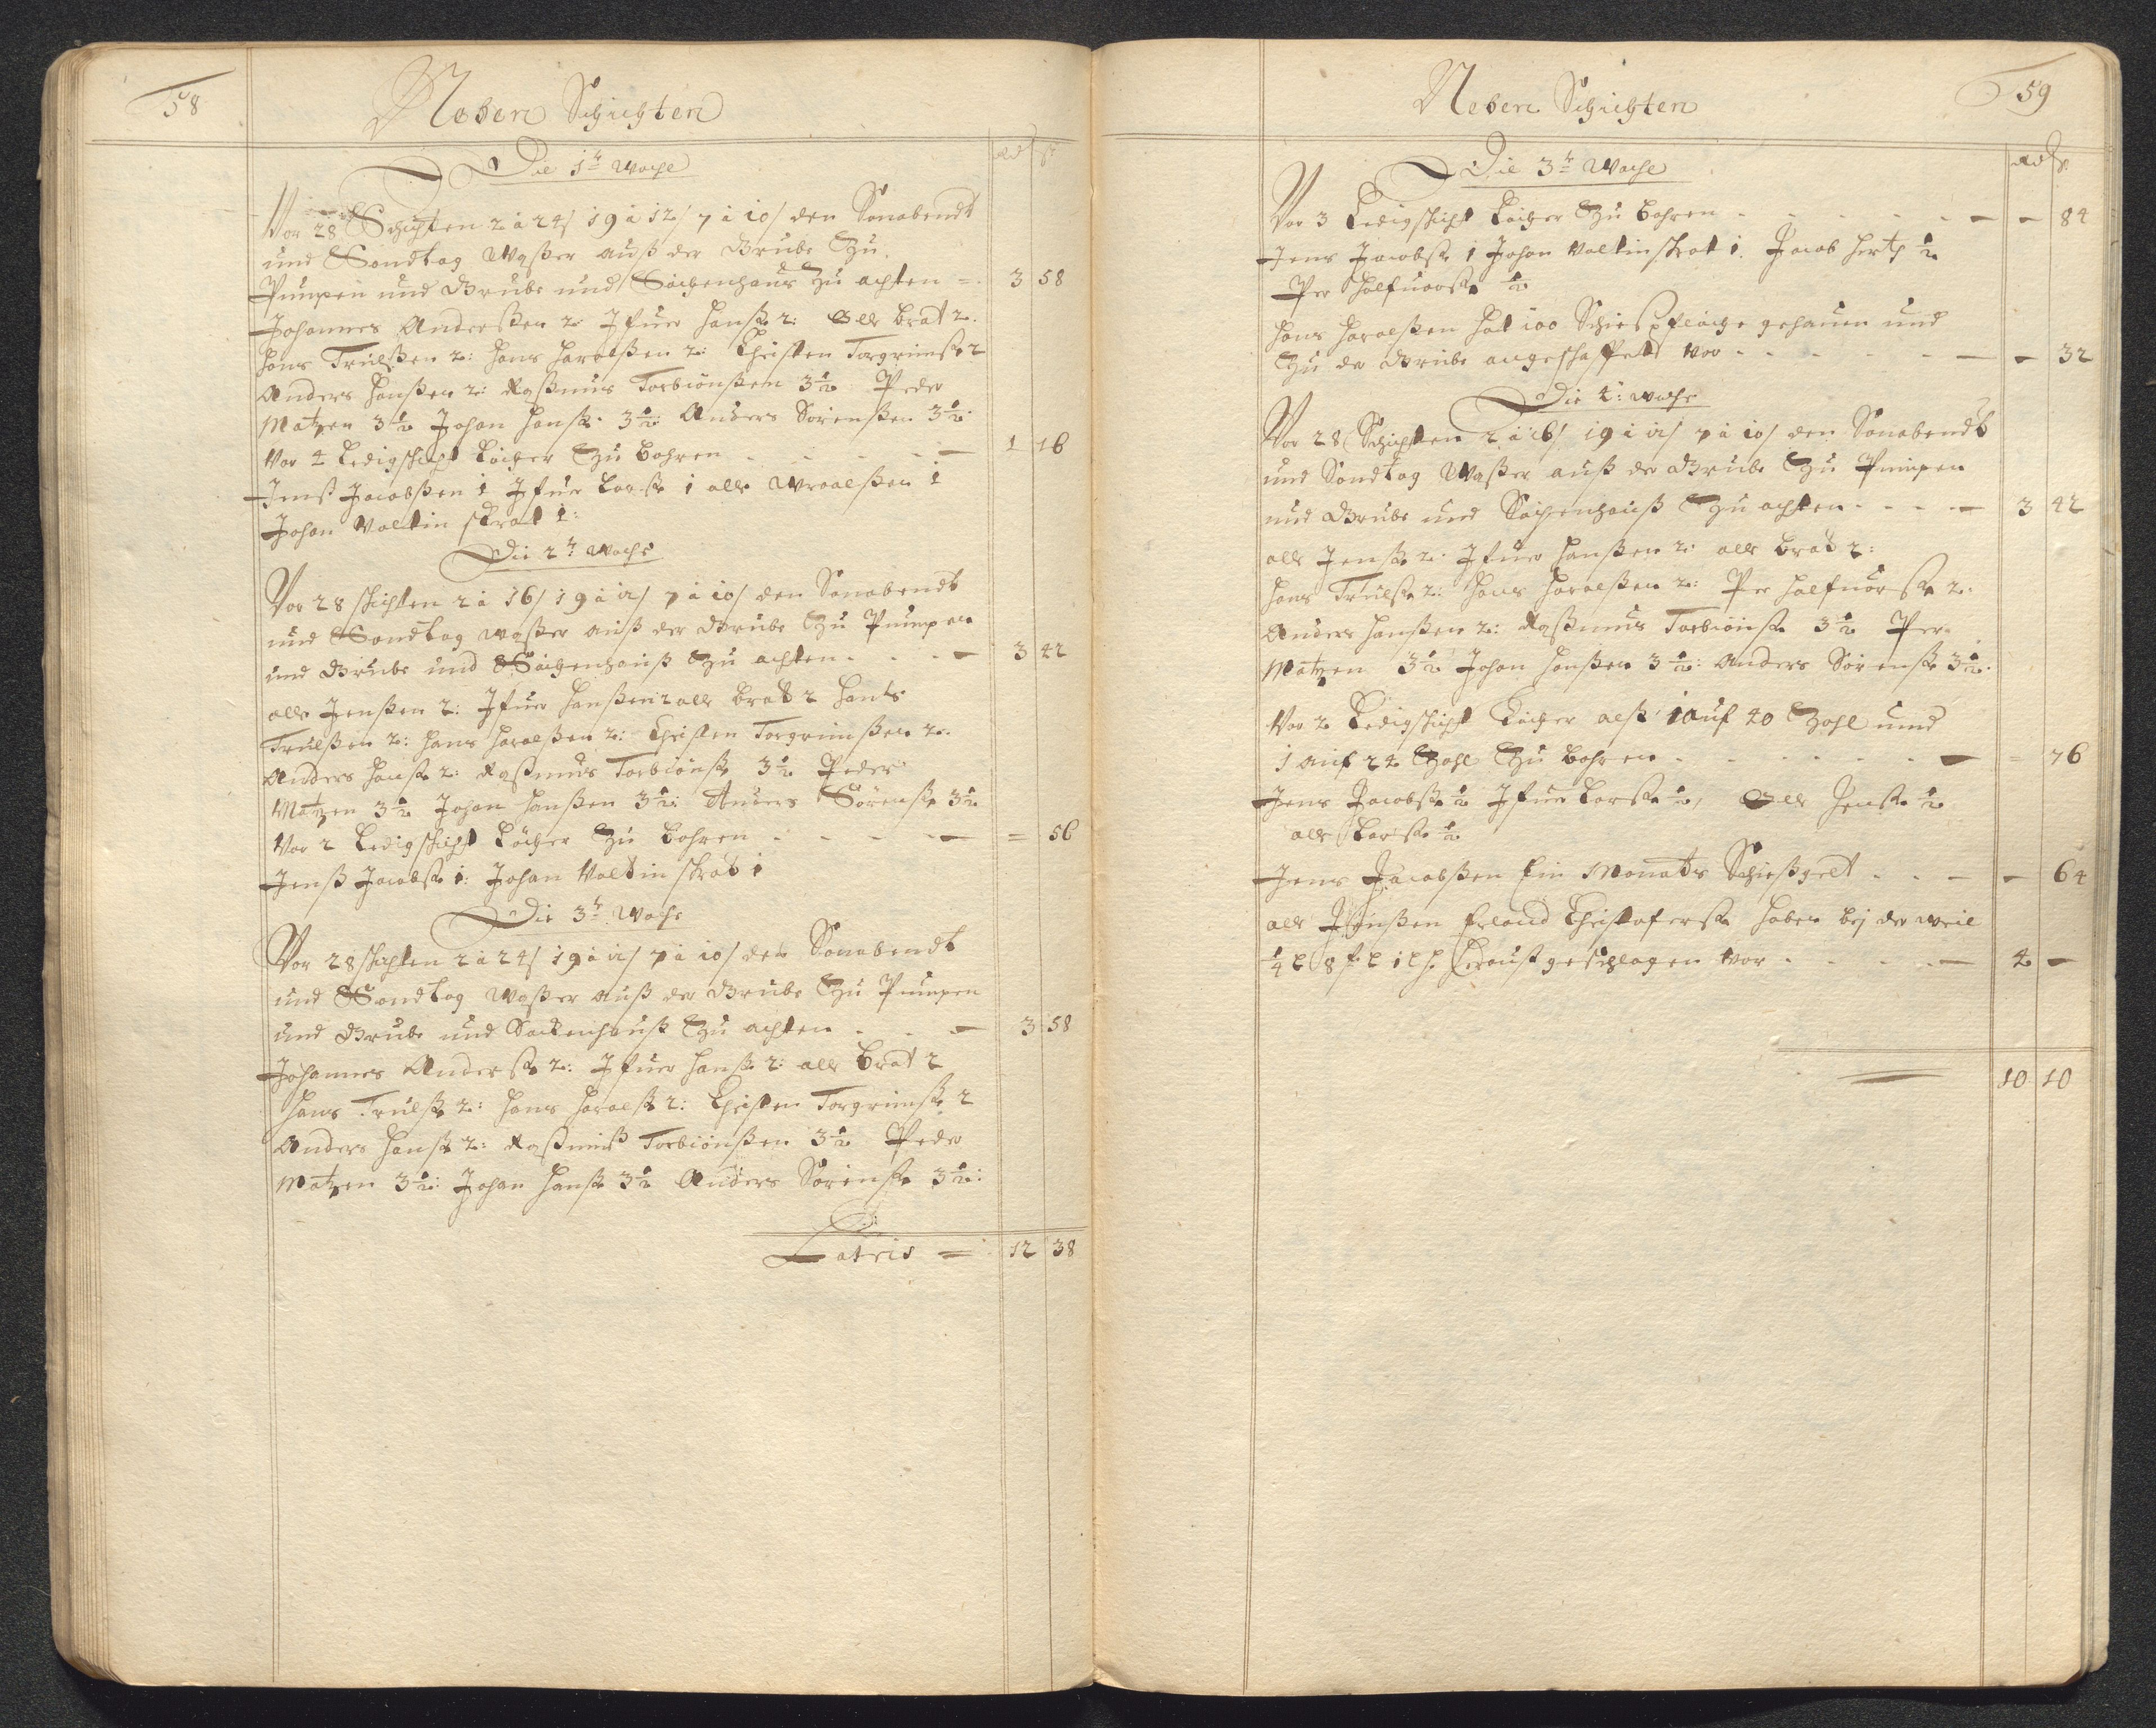 58
Neben Schichten
Die 1te Woche
Rd ß
Vor 28 Schichten 2 à 24/ 19 à 12/ 7 à 10/ den Sonabendt
und Sondtag Waßer auß der Grube Zu
Pumpen und Grube und Sachenhaus Zu achten = 3 58
Johannes Anderßen 2: Ifuer Hanß: 2: Olle Brat 2.
Hans Trulßen 2: Hans Haralßen 2: Christen Torgrimß: 2
Anders Hanßen 2: Raßmus Torbiönßen 3½ Peder
Matzen 3½ Johan Hanß: 3½: Anders Sörenßen 3½.
Vor 4 Ledigschicht Löcher Zu Bohren - - - - - 1 16
Jenß Jacobßen 1 Ifuer Larß: 1 Olle Wroalßen 1
Johan Valtin Skrat 1:
Die 2te Woche
Vor 28 schichten 2 à 16/ 19 à 12/ 7 à 10/ den Sonabendt
und Sondtag waßer auß der Grube Zu Pumpen
und Grube und Sachenhauß Zu achten - - - - 3 42
Olle Jenßen 2: Ifuer Hanßen 2 Olle Brat 2 Hans
Trulßen 2: Hans Haralßen 2: Christen Torgrimßen 2.
Anders Hanß: 2: Raßmus Torbiönß: 3½ Peder
Matzen 3½ Johan Hanßen 3½: Anders Sörenß: 3½
Vor 2 Ledigschicht Löcher Zu Bohren - - - - = 56
Jenß Jacobß: 1: Johan Valtin Skrat 1
Die 3te Woche
Vor 28 schichten 2 à 24/ 19 à 12/ 7 à 10/ den Sonabendt
und Sondtag Waßer auß der Grube Zu Pumpen
und Grube und Sachenhauß Zu achten - - - 3 58
Johannes Anderß: 2: Ifuer Hanß: 2: Olle Brat 2
Hans Trulß: 2: Hans Haralß: 2: Christen Torgrimß: 2
Anders Hanß: 2: Raßmuß Torbiönßen 3½ Peder
Matzen 3½: Johan Hanß: 3½ Anders Sörenß: 3½:
Latris = 12 38
59
Neben Schichten
Die 3te Woche
Rd ß
Vor 3 Ledigschicht Löcher Zu Bohren - - - - - - - 84
Jens Jacobß: 1 Johan Valtin Skrat 1. Jacob Hertz ½
Per Halfuorß: ½
Hans Haralßen hat 100 Schießpflöche gehauen und
Zu der Grube angeschaffet vor - - - - - - - 32
Die 4: Woche
Vor 28 Schichten 2 à 16/ 19 à 12/ 7 à 10/ den Sonabendt
und Sondtag Waßer auß der Grube Zu Pumpen
und Grube und Sachenhauß Zu achten - - - - 3 42
Olle Jenß: 2: Ifuer Hanßen 2: Olle Brat 2:
Hans Trulß: 2: Hans Haralßen 2: Per Halfuorß: 2:
Anders Hanßen 2: Raßmus Torbiönß: 3½ Per
Matzen 3½ Johan Hanßen 3½: Anders Sörenß: 3½.
Vor 2 Ledigschicht Löcher alß 1 auf 40 Zohl und
1 auf 24 Zohl Zu Bohren - - - - - - - = 76
Jens Jacobß: ½ Ifuer Larß: ½, Olle Jenß: ½
Olle Larß: ½
Jens Jacobßen Ein Monats Schießgelt - - - - 64
Olle Jenßen Erland Christoferß: haben bej der weil
herauß geschlagen vor - - - - - 4 -
10 10